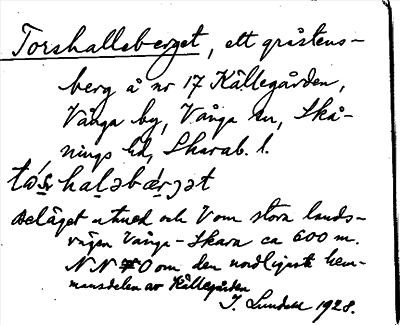 Torshallsberget, ett gråstens-
berg å nr 17 Källegården,
Vånga by, Vånga sn, Skå-
nings hd, Skarab. l.
Beläget utmed och V om stora lands-
vägen Vånga - Skara ca 600 m.
NNO om den nordligaste hem-
mansdelen av Källegården
J. Lundell 1928.